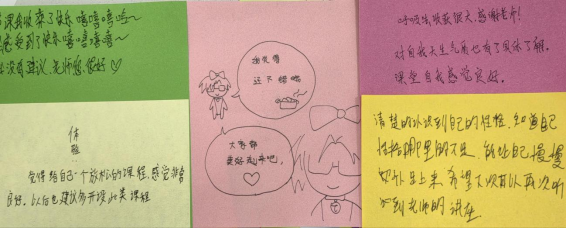 课我收获了快乐 嘻嘻嘻嘻~
感受到了快乐嘻嘻嘻嘻~
没有建议,老师您很好♡
体验
觉得给自己一个放松的课程,感觉非常
良好。以后也建议多开设此类课程
我觉得
还不错哦
大家都
是好孩子吧。
收获很大,感谢老师!
对自我天生气质也有了具体了解。
课堂自我感觉良好。
清楚的认识到自己的性格,知道自己
性格哪里的不足,能让自己慢慢
弥补上来,希望下次可以再次听
到老师的讲座